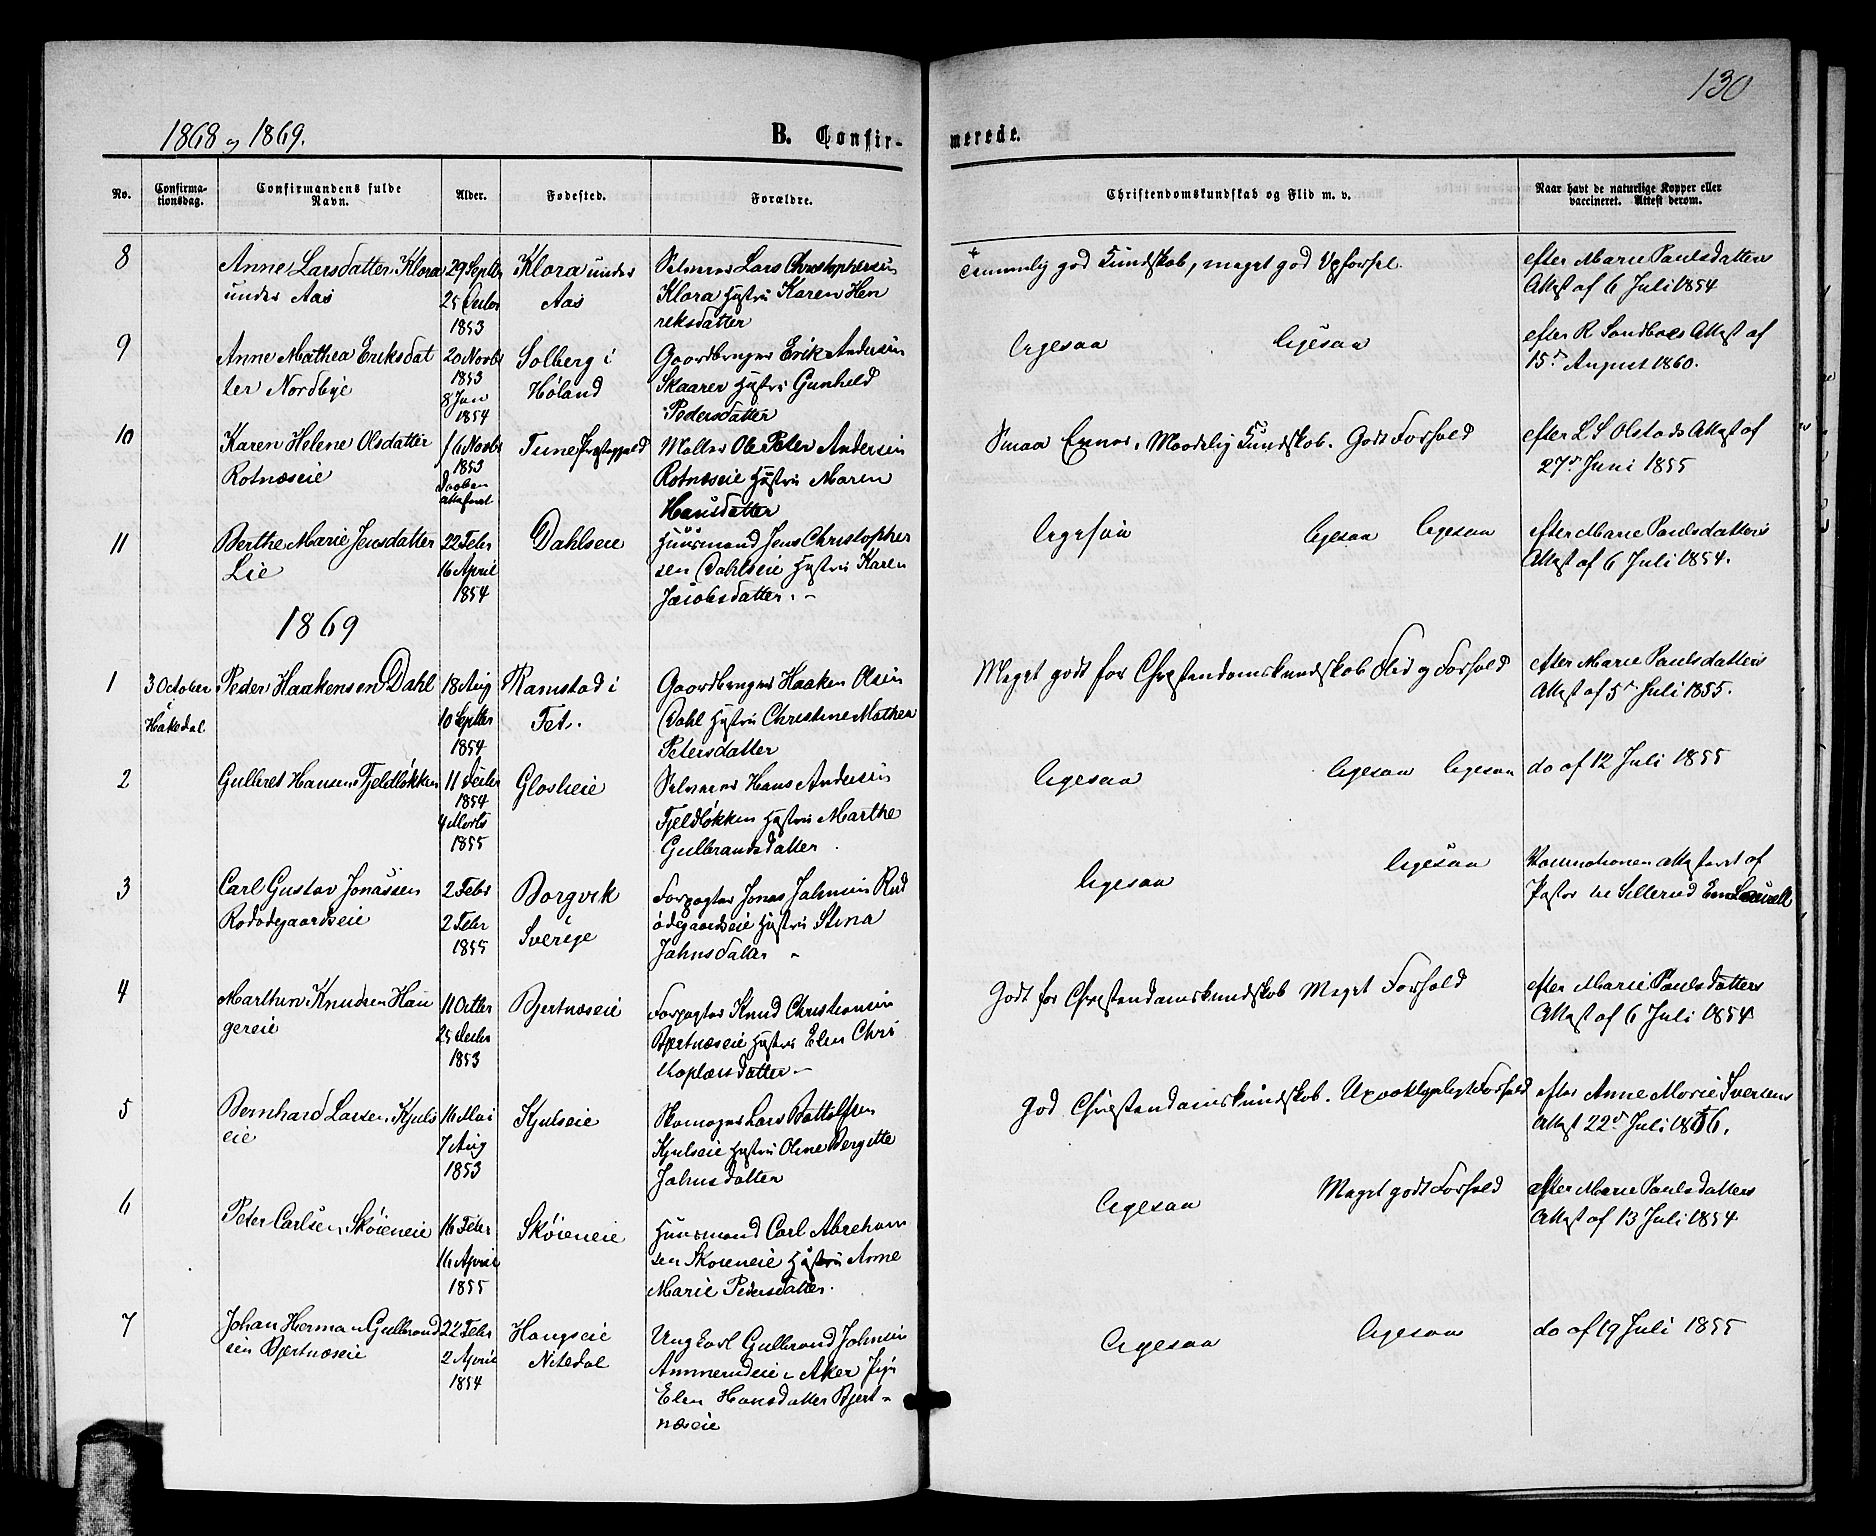 130
1868 og 1869.
B. Confir-
merede.
No.
Confirma-
tionsdag.
Confirmandens fulde
Navn.
Alder.
Fødested.
Forældre.
Christendomskundskab og Flid m. v.
Naar havt de naturlige Kopper eller
vaccineret. Attest derom.
8
Anne Larsdatter Klora
under Aas
29 Septbr
25 Decbr
1853
Klora under
Aas
Selveier Lars Christophersen
Klora Hustru Karen Hen
reksdatter
Temmelig god Kundskab, meget god Opførsel.
efter Marie Paulsdatters
Attest af 6 Juli 1854
9
Anne Mathea Eriksdat
ter Nordbye
20 Novbr
1853
8 Jan
1854
Solberg i
Høland
Gaardbruger Erik Andersen
Skaarer Hustru Gunhild
Pedersdatter
ligesaa
ligesaa
efter R Sandboes Attest af
15de August 1860.
10
Karen Helene Olsdatter
Rotnæseie
16 Novbr
1853
Daaben
attesteret
Tune Præstegjeld
Møller Ole Peter Andersen
Rotnæseie Hustru Maren
Hansdatter
Smaa Evner, Maadelig Kundskab. Godt Forhold
efter L S Olstads Attest af
27de Juni 1855
11
Berthe Marie Jensdatter
Lie
22 Febr
16 April
1854
Dahlseie
Huusmand Jens Christopher
sen Dahlseie Hustru Karen
Jacobsdatter. -
ligesaa
ligesaa
ligesaa
efter Marie Paulsdatters
Attest af 6 Juli 1854.
1869
1
3 October
i
Hakedal
Peder Haakensen Dahl
18 Aug
10 Septbr
1854
Ramstad i
Fet.
Gaardbruger Haaken Olsen
Dahl Hustru Christine Mathea
Petersdatter
Meget godt for Christendomskundskab Flid og Forhold
efter Marie Paulsdatters
Attest af 5te Juli 1855.
2
Gulbret Hansen Fjeldløkken
11 Decbr
1854
4 Marts
1855
Glosheie
Selveier Hans Andersen
Fjeldløkken Hustru Marthe
Gulbrandsdatter
ligesaa
ligesaa
ligesaa
do af 12 Juli 1855
3
Carl Gustav Jonassen
Rødødegaardseie
2 Febr
2 Febr
1855
Borgvik
Sverige
Forpagter Jonas Jahnsen Rød
ødegaardseie Hustru Stina
Jahnsdatter -
ligesaa
ligesaa
Vacinationen attesteret af
Pastor in Sillerud
4
Marthin Knudsen Hau
gereie
11 Octbr
25 Decbr
1853
Bjertnæseie
Forpagter Knud Christiansen
Bjertnæseie Hustru Elen Chri
stophersdatter -
Godt for Christendomskundskab Meget Forhold
efter Marie Paulsdatters
Attest af 6 Juli 1854
5
Bernhard Larsen Kjuls
eie
16 Mai
7 Aug
1853
Kjulseie
Skomager Lars Battolfsen
Kjulseie Hustru Oline Bergitte
Jahnsdatter
God Christendomskundskab. Upaaklageligt Forhold
efter Anne Marie Iversens
Attest 22de Juli 1866.
6
Peter Carlsen Skøieneie
16 Febr
16 April
1855
Skøieneie
Huusmand Carl Abraham
sen Skøieneie Hustru Anne
Marie Pedersdatter.
ligesaa
Meget godt Forhold
efter Marie Paulsdatters
Attest af 13 Juli 1854
7
Johan Herman Gulbrand
sen Bjertnæseie
22 Febr
2 April
1854
Haugseie
Nitedal
Ungkarl Gulbrand Johnsen
Ammerudeie i Aker Pige
Elen Hansdatter Bjert-
næseie
ligesaa
ligesaa
do af 19 Juli 1855